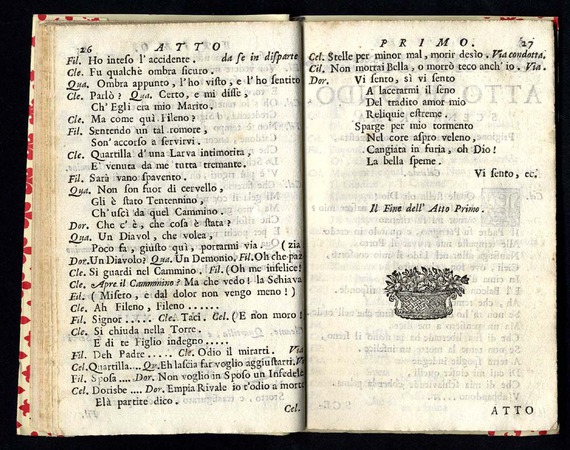 26 ATTO
Fil. Ho inteso l'accidente. da se in disparte
Cle. Fu qualchè ombra sicuro.
Qua. Ombra appunto, l'ho visto, e l'ho sentito
Cle. Parlò? Qua. Certo, e mi disse,
Ch' Egli era mio Marito.
Cle. Ma come quì Fileno?
Fil. Sentendo un tal romore,
Son' accorso a servirvi.
Cle. Quartilla d'una Larva intimorita,
E' venuta da me tutta tremante.
Fil. Sarà vano spavento.
Qua. Non son fuor di cervello,
Gli è stato Tentennino,
Ch' uscì da quel Cammino.
Dor. Che c' è, che cosa è stata?
Qua. Un Diavol, che volea,
Poco fa, giusto quì, portarmi via. (zia
Dor. Un Diavolo? Qua. Un Demonio. Fil. Oh che paz
Cle. Si guardi nel Cammino. Fil. (Oh me infelice!
Cle. Apre il Cammmino? Ma che vedo! la Schiava
Fil. (Misero, e dal dolor non vengo meno!)
Cle. Ah Fileno, Fileno ......
Fil. Signor ..... Cle. Taci. Cel. (E non moro!
Cle. Si chiuda nella Torre.
E di te Figlio indegno.....
Fil. Deh Padre ..... Cle. Odio il mirarti. Via
Cel. Quartilla.... Qu. Eh lascia far voglio aggiustarti. Via
Fil. Sposa .... Dor. Non voglio in Sposo un Infedele
Cel. Dorisbe .... Dor. Empia Rivale io t'odio a morte
Elà partite dico.
Cel.
PRIMO. 27
Cel. Stelle per minor mal, morir desìo. Via condotta.
Cil. Non morrai Bella, o morrò teco anch' io. Via.
Dor. Vi sento, sì vi sento
A lacerarmi il seno
Del tradito amor mio
Reliquie estreme.
Sparge per mio tormento
Nel core aspro veleno,
Cangiata in furia, oh Dio!
La bella speme.
Vi sento, ec.
Il Fine dell' Atto Primo.
ATTO